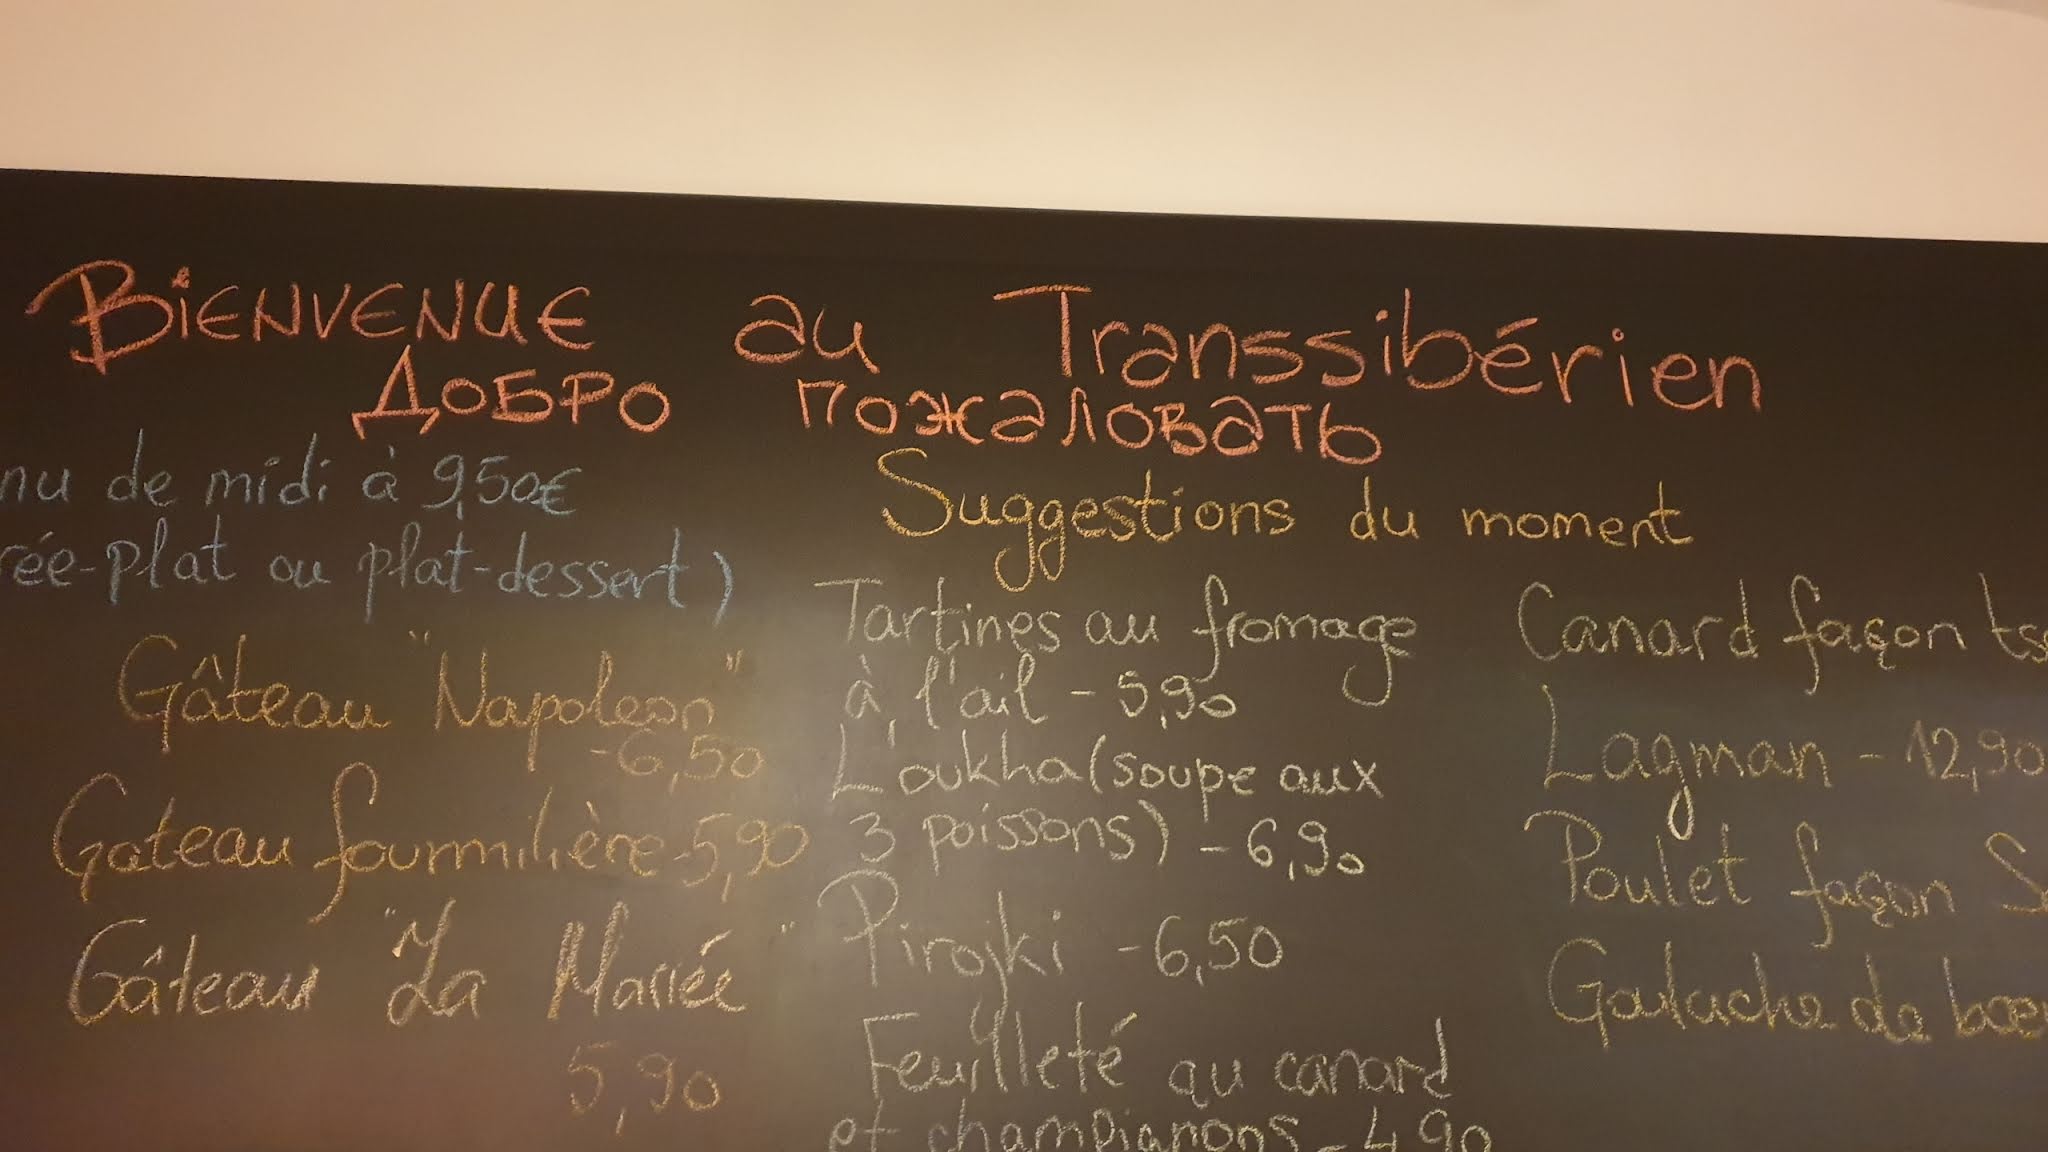 BiENVENUE au Transsibérien
ДОБРО пожаловать
nu de midi à 9,50€
rée-plat ou plat-dessert)
Gâteau "Napoleon"
-6,50
Gateau fourmilière-5,90
Gâteau "La Mariée"
5,90
Suggestions du moment
Tartines au fromage
à l'ail - 5,90
L'oukha (soupe aux
3 poissons) - 6,90
Pirojki - 6,50
Feuilleté au canard
et champignons - 4,90
Canard façon ts
Lagman - 12,90
Poulet façon S
Galuche de bœu